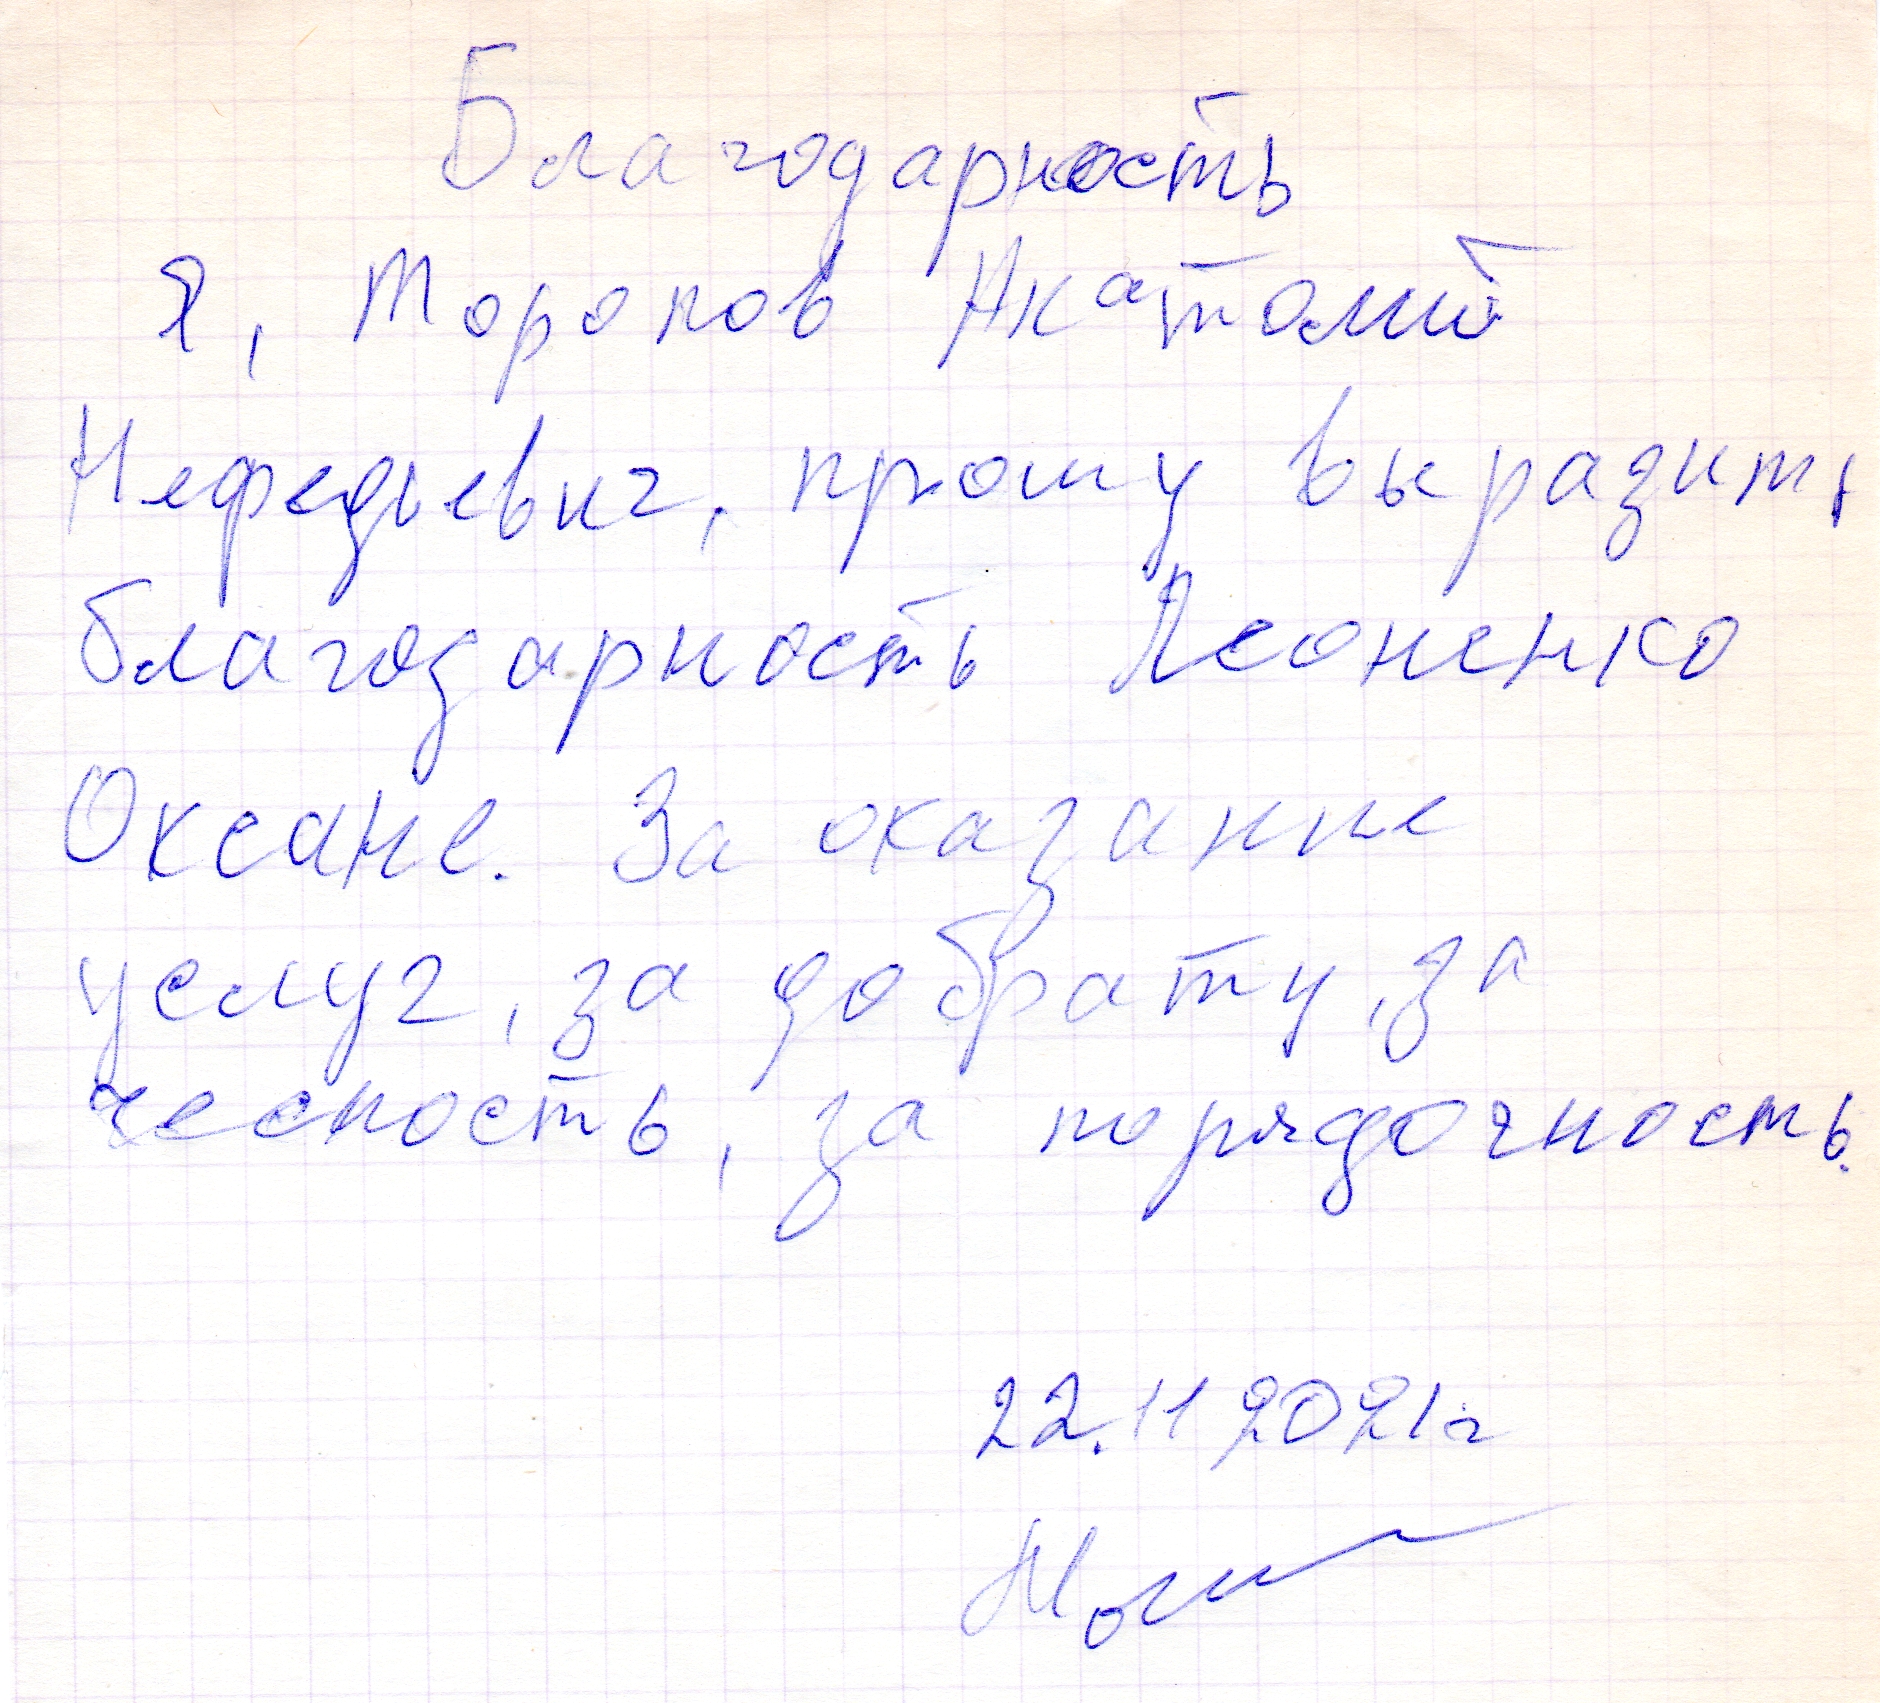 Благодарность
Я, Торопов Анатолий
Нефедьевич, прошу выразить
благодарность Леоненко
Оксане. За оказание
услуг, за добрату, за
чесность, за порядочность.
22.11 2021г